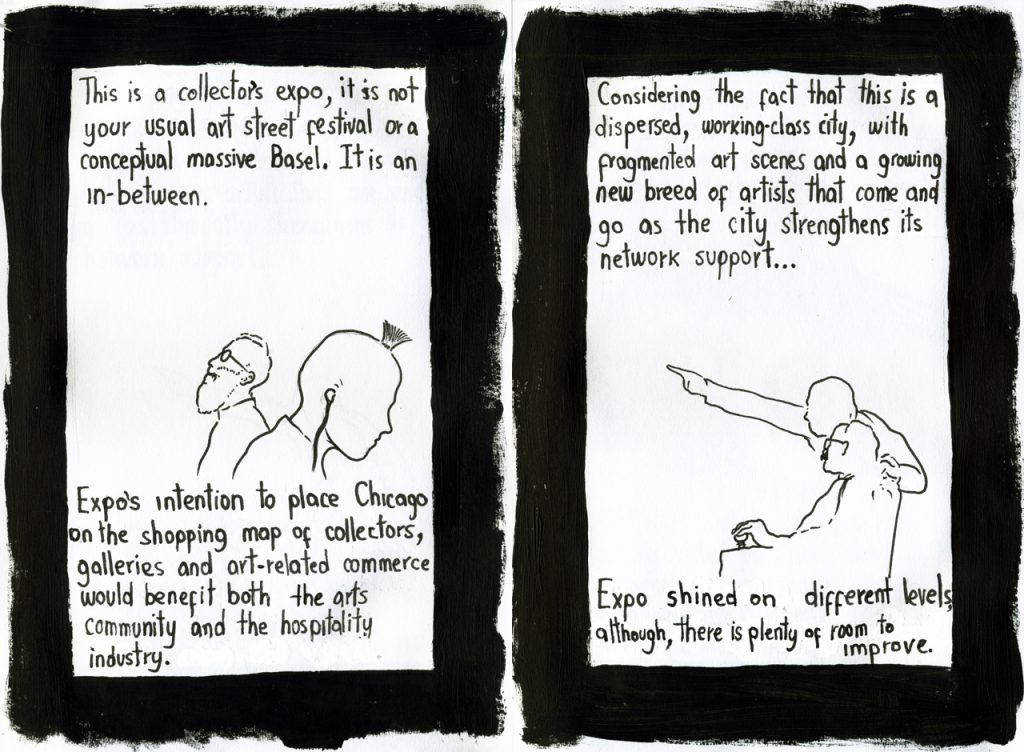 This is a collector's expo, it is not
your usual art street festival or a
conceptual massive Basel. It is an
in-between.
Expo's intention to place Chicago
on the shopping map of collectors,
galleries and art-related commerce
would benefit both the arts
community and the hospitality
industry.
Considering the fact that this is a
dispersed, working-class city, with
fragmented art scenes and a growing
new breed of artists that come and
go as the city strengthens its
network support...
Expo shined on different levels,
although, there is plenty of room to
improve.